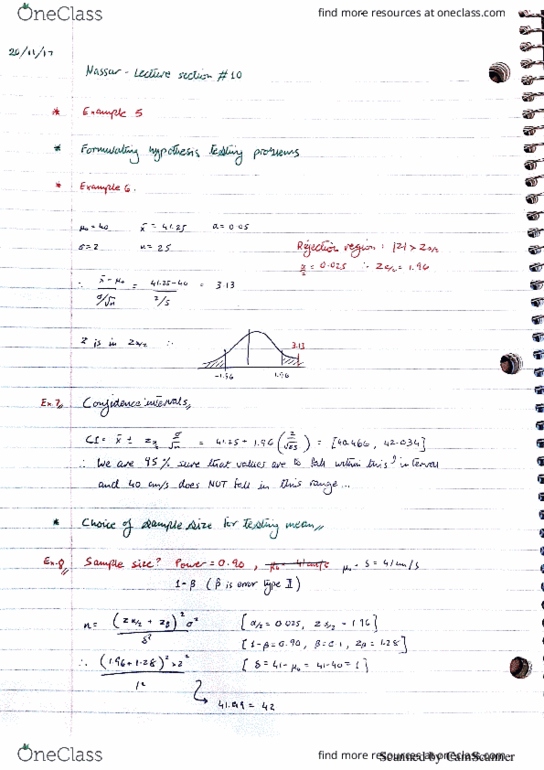 OneClass
find more resources at oneclass.com
Nassar - Lecture section #10
* Example 5
* Formulating hypothesis testing problems
* Example 6.
μ₀ = 40 x̄ = 41.25 α = 0.05
σ = 2 n = 25 Rejection region : |z| > Zα/₂
α/2 = 0.025 ∴ Zα/₂ = 1.96
∴ (x̄ - μ₀)/(σ/√n) = (41.25-40)/(2/5) = 3.13
Z is in Zα/₂ ∴
3.13
-1.96 1.96
Ex.7, Confidence intervals,
CI = x̄ ± Zα/₂ σ/√n = 41.25 + 1.96 (2/√25) = [40.466, 42.034]
∴ We are 95% sure that values are to fall within this interval
and 40 cm/s does NOT fall in this range...
* Choice of sample size for testing mean,,
Ex.8, Sample size? Power = 0.90 , μ₀ - δ = 41 cm/s
1-β (β is error type II)
n = (Zα/₂ + Zβ)² σ² / δ² [α/2 = 0.025, Zα/₂ = 1.96]
[1-β = 0.90, β = 0.1, Zβ = 1.28]
∴ (1.96 + 1.28)² × 2² / 1² [δ = 41 - μ₀ = 41-40 = 1]
= 42
OneClass
find more resources at oneclass.com
Scanned by CamScanner